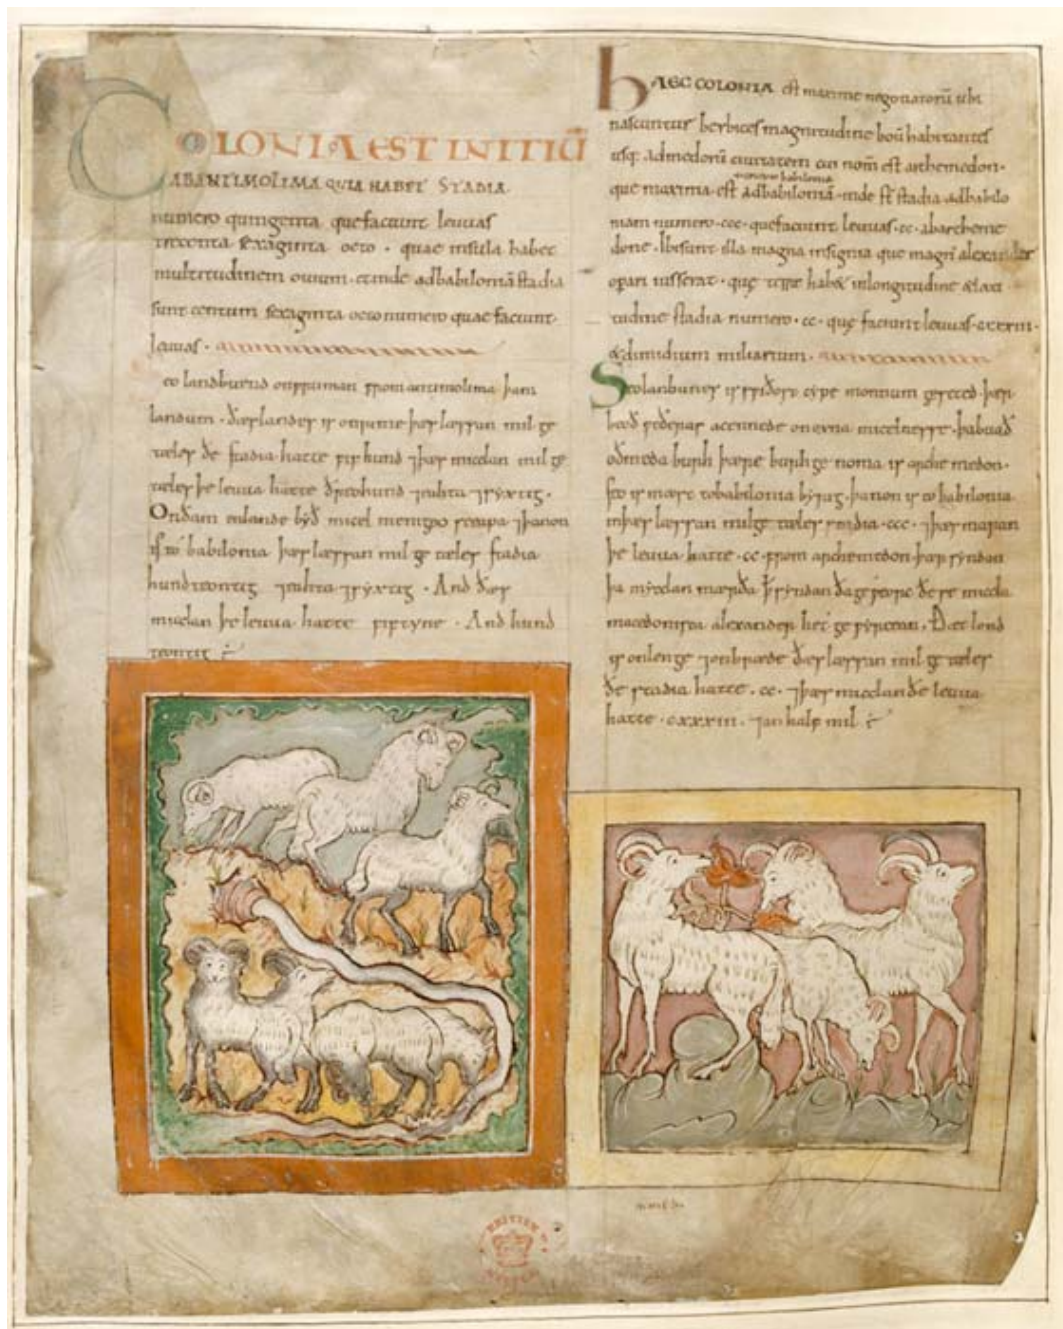 COLONIA EST INITIŪ
AB ANTIMOLIMA QUIA HABET STADIA
numero quingenta que faciunt leuuas
trecenta sexaginta octo · quae insula habet
multitudinem ouium · et inde ad babiloniā stadia
sunt centum sexaginta octo numero quae faciunt
leuuas ·
eo landbuend onfruman from antimolima þam
landum · ðæs landes is on rime þæs læssan milge
tæles ðe stadia hatte fif hund ⁊ þæs micclan milge
tæles þe leuua hatte ðreo hund ⁊ eahta ⁊ syxtig ·
On ðam ealande byð micel menigeo sceapa ⁊ þanon
is to babilonia þæs læssan milgetæles stadia
hundteontig ⁊ eahta ⁊ syxtig · And ðæs
micclan þe leuua hatte fiftyne · And hund
teontig
HAEC COLONIA est maxime negotiatorū ubi
nascuntur berbices magnitudine boū habitantes
usq: ad medorū ciuitatem cui nom̄ est archemedon ·
babilonia
que maxima est ad babiloniā · inde s̄t stadia ad babilo
niam numero · ccc · que faciunt leuuas · cc · ab archeme
done · Ibi sunt illa magna insignia que magn' alexander
operari iusserat · quę terre habet in longitudine & lati
tudine stadia numero · cc · quę faciunt leuuas · cxxxiii ·
& dimidium miliarium ·
Seo landbunes is swiðost cype monnum geseted · þær
beoð weðeras acennede on oxna micelnesse · þa buað
oð meda burh þære burhge noma is archemedon ·
seo is mæst to babilonia byrig · þanon is to babilonia
in þæs læssan milgetæles stadia · ccc · ⁊ þæs maran
þe leuua hatte · cc · from archemedon · þær syndon
þa mycclan mærða þ syndan ða geweorc ðe se miccla
macedonisca alexander het gewyrcean · Ðæt lond
is on lenge ⁊ on bræde ðæs læssan milgetæles
ðe stadia hatte · cc · ⁊ þæs micclan ðe leuua
hatte · cxxxiii · ⁊ an half mil
BRITISH
MUSEUM